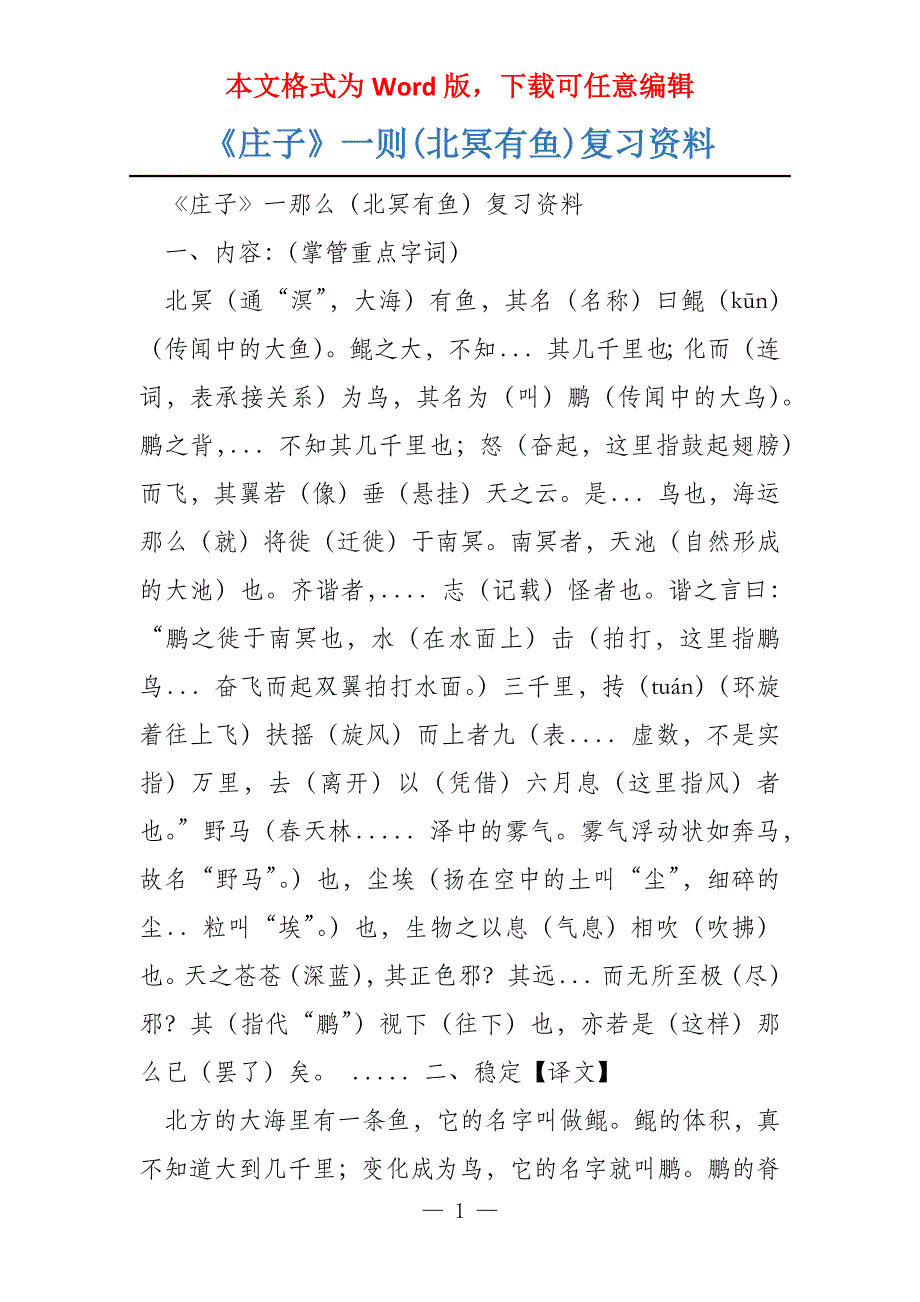 本文格式为 Word 版，下载可任意编辑
《庄子》一则(北冥有鱼)复习资料
《庄子》一那么（北冥有鱼）复习资料
一、内容：（掌管重点字词）
北冥（通“溟”，大海）有鱼，其名（名称）曰鲲（kūn）
（传闻中的大鱼）。鲲之大，不知... 其几千里也；化而（连
词，表承接关系）为鸟，其名为（叫）鹏（传闻中的大鸟）。
鹏之背，... 不知其几千里也；怒（奋起，这里指鼓起翅膀）
而飞，其翼若（像）垂（悬挂）天之云。是... 鸟也，海运
那么（就）将徙（迁徙）于南冥。南冥者，天池（自然形成
的大池）也。齐谐者，.... 志（记载）怪者也。谐之言曰：
“鹏之徙于南冥也，水（在水面上）击（拍打，这里指鹏
鸟... 奋飞而起双翼拍打水面。）三千里，抟（tuán）（环旋
着往上飞）扶摇（旋风）而上者九（表.... 虚数，不是实
指）万里，去（离开）以（凭借）六月息（这里指风）者
也。” 野马（春天林..... 泽中的雾气。雾气浮动状如奔马，
故名“野马”。）也，尘埃（扬在空中的土叫“尘”，细碎的
尘.. 粒叫“埃”。）也，生物之以息（气息）相吹（吹拂）
也。天之苍苍（深蓝），其正色邪？其远... 而无所至极（尽）
邪？其（指代“鹏”）视下（往下）也，亦若是（这样）那
么已（罢了）矣。 ..... 二、稳定【译文】
北方的大海里有一条鱼，它的名字叫做鲲。鲲的体积，真
不知道大到几千里；变化成为鸟，它的名字就叫鹏。鹏的脊
— 1 —